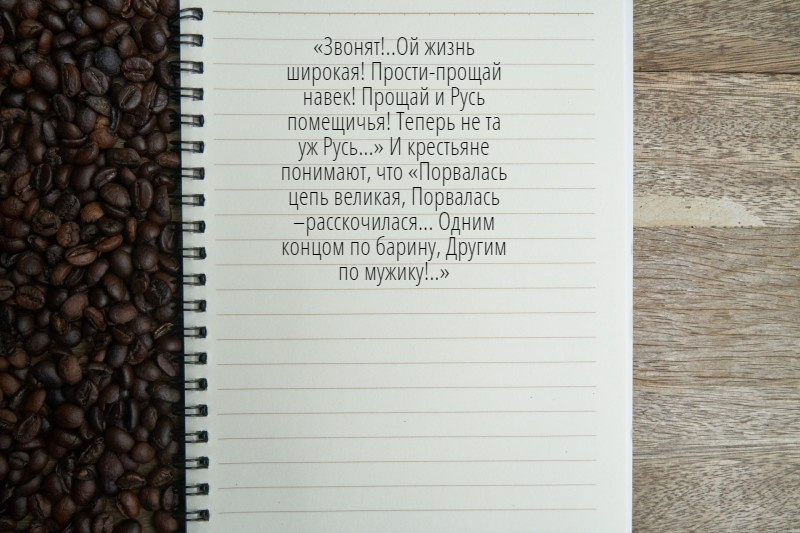 «Звонят!..Ой жизнь
широкая! Прости-прощай
навек! Прощай и Русь
помещичья! Теперь не та
уж Русь...» И крестьяне
понимают, что «Порвалась
цепь великая, Порвалась
–расскочилася... Одним
концом по барину, Другим
по мужику!..»